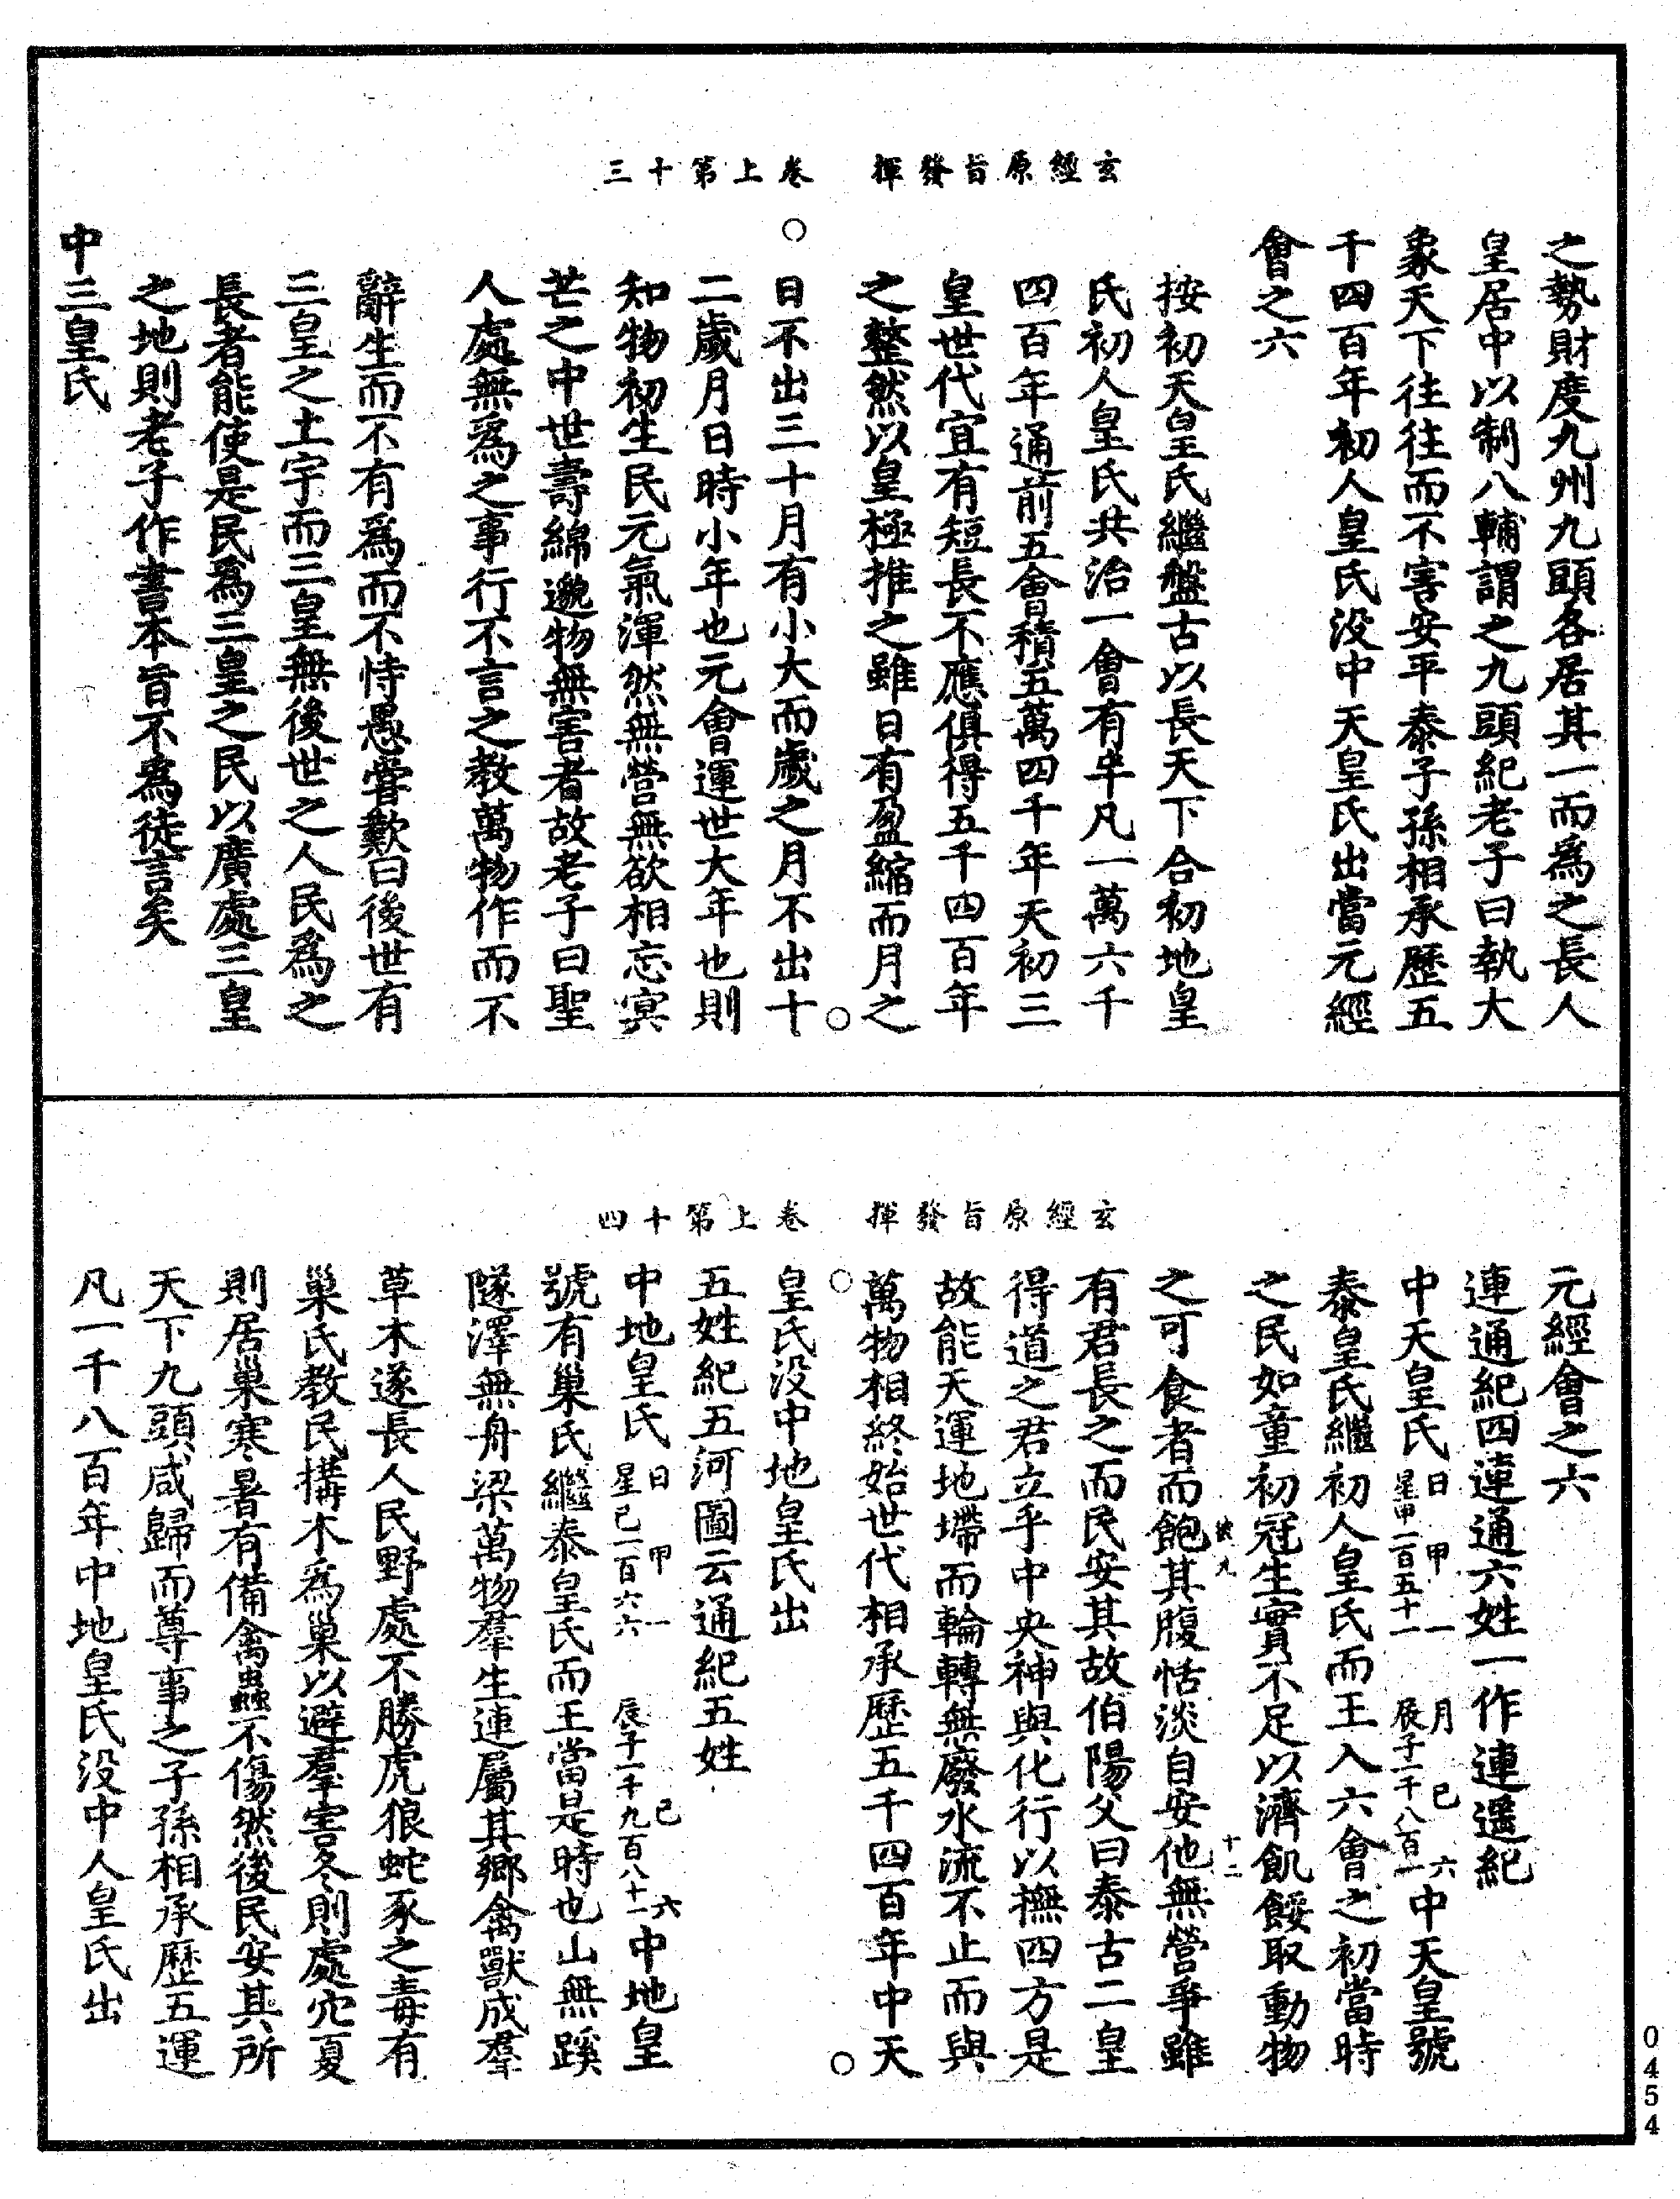 玄經原旨發揮　卷上第十三
之勢財度九州九頭各居其一而爲之長人
皇居中以制八輔謂之九頭紀老子曰執大
象天下往往而不害安平泰子孫相承歷五
千四百年初人皇氏没中天皇氏出當元經
會之六
按初天皇氏繼盤古以長天下合初地皇
氏初人皇氏共治一會有半凡一萬六千
四百年通前五會積五萬四千年天初三
皇世代宜有短長不應俱得五千四百年
之整然以皇極推之雖日有盈縮而月之
日不出三十月有小大而歲之月不出十
二歲月日時小年也元會運世大年也則
知物初生民元氣渾然無營無欲相忘㝠
芒之中世壽綿邈物無害者故老子曰聖
人處無爲之事行不言之教萬物作而不
辭生而不有爲而不恃愚嘗歎曰後世有
三皇之土宇而三皇無後世之人民爲之
長者能使是民爲三皇之民以廣處三皇
之地則老子作書本旨不爲徒言矣
中三皇氏
玄經原旨發揮　卷上第十四
元經會之六
連通紀四連通六姓一作連遥紀
中天皇氏 日甲一 月巳六 星甲一百五十一 辰子一千八百一 中天皇號
泰皇氏繼初人皇氏而王入六會之初當時
之民如童初冠生實不足以濟飢餒取動物
之可食者而飽其腹恬淡自安他無營爭雖
十二
有君長之而民安其故伯陽父曰泰古二皇
得道之君立乎中央神與化行以撫四方是
故能天運地墆而輪轉無廢水流不止而與
萬物相終始世代相承歷五千四百年中天
皇氏没中地皇氏出
五姓紀五河圖云通紀五姓
中地皇氏 日甲一 月巳六 星己一百六六 辰子一千九百八十一 中地皇
號有巢氏繼泰皇氏而王當是時也山無蹊
隧澤無舟梁萬物羣生連屬其鄉禽獸成羣
草木遂長人民野處不勝虎狼蛇豕之毒有
巢氏教民搆木爲巢以避羣害冬則處穴夏
則居巢寒暑有備禽蟲不傷然後民安其所
天下九頭咸歸而尊事之子孫相承歷五運
凡一千八百年中地皇氏没中人皇氏出
0454